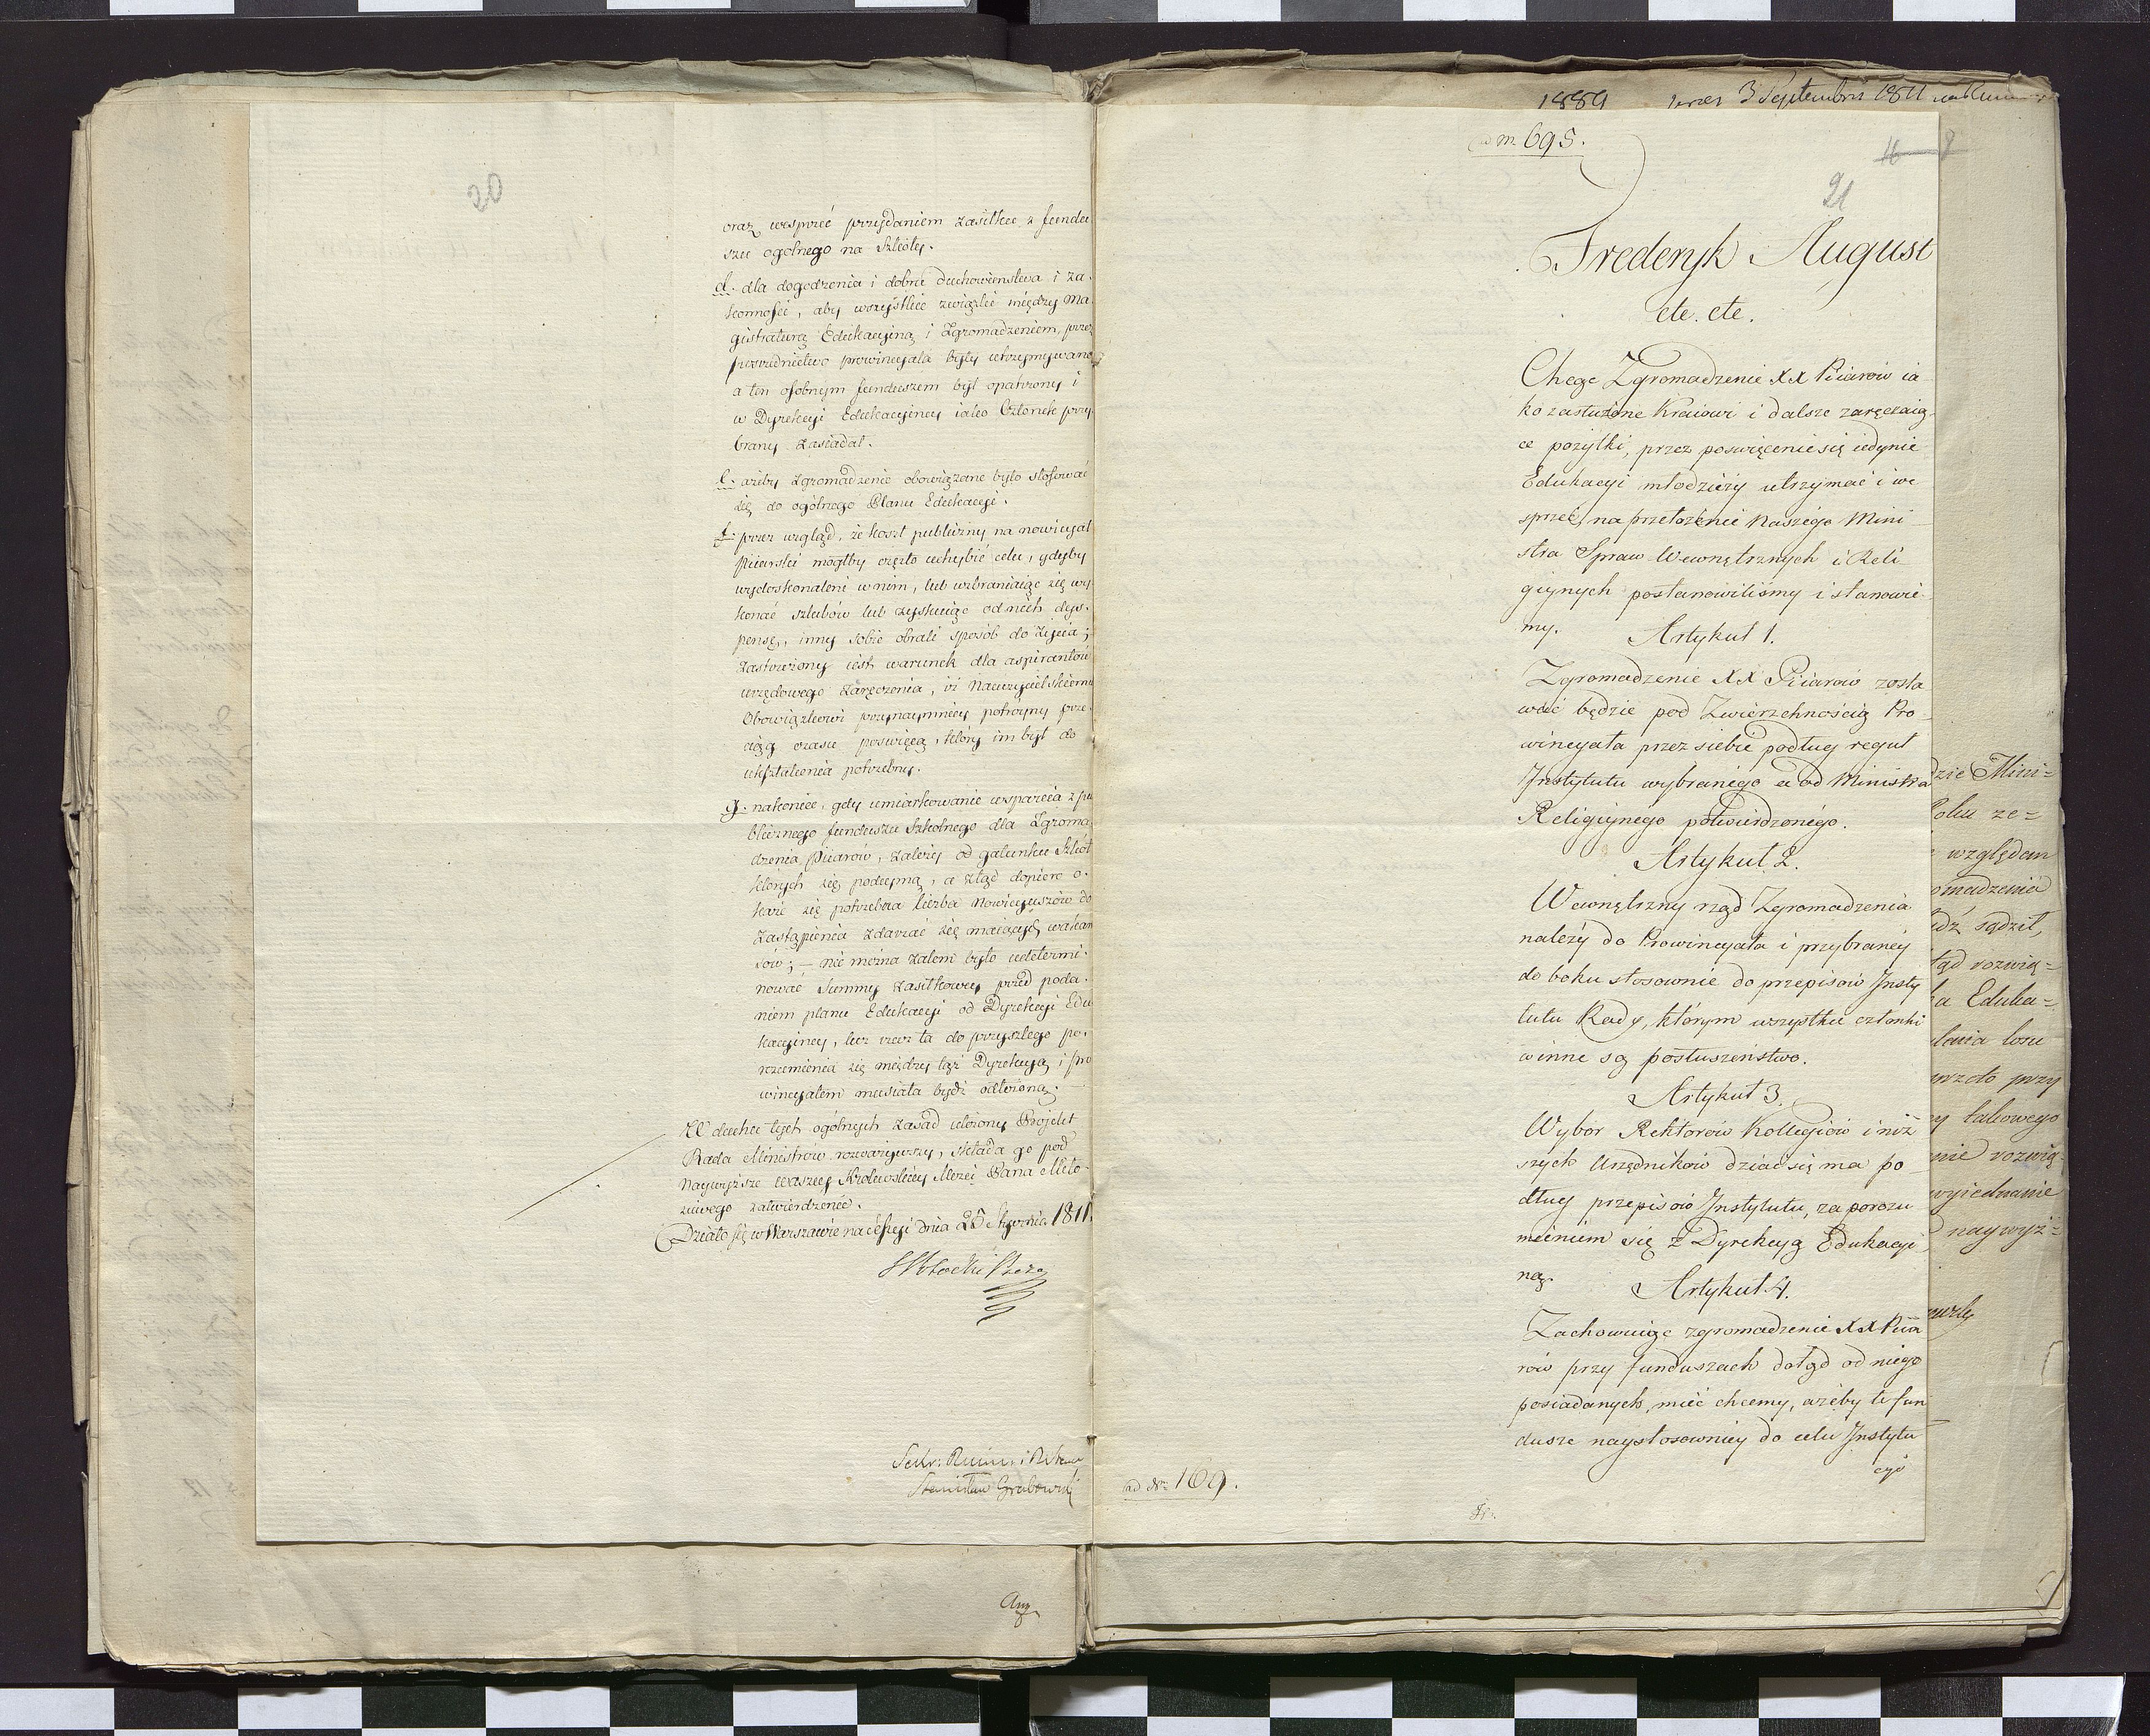 20
oraz wesprzeć przydaniem zasiłku z fundu
szu ogolnego na Szkoły.
d. dla dogodzenia i dobru duchowienstwa i za-
konnosci, aby wszystkie związki między Ma
gistraturą Edukacyiną i Zgromadzeniem, przez
posrednictwo prowincyala były utrzymywane
a ten osobnym funduszem był opatrzony i
w Dyrekcyi Edukacyiney iako Członek przy-
brany zasiadał.
e. ażeby Zgromadzenie obowiązane było stosować
się do ogólnego Planu Edukacyi.
f. przez wzgląd, że koszt publiczny na nowicyat
Piiarski mogłby często uchybić celu, gdyby
wydoskonaleni w nim, lub wzbraniaiąc się wy
konać szlubów lub zyskuiąc od nich dys-
pensę, inny sobie obrali sposób do życia;
zastowiony iest warunek dla aspirantów
urzędowego zaręczenia, iż Nauczycielskiemu
Obowiązkowi przynaymniey potróyny prze-
ciąg czasu poswięcą, który im był do
ukształcenia potrzebny.
g. nakoniec, gdy umiarkowanie wsparcia z pu
blicznego funduszu Szkolnego dla Zgroma
dzenia Piiarów, zależy od gatunku Szkół
których się podeymą, a ztąd dopiero o-
każe się potrzebna liczba Nowicyuszów do
zastąpienia zdarzać się maiących wakan
sów; — nie można zatem było determi-
nować Summy zasiłkowey przed poda-
niem planu Edukacyi od Dyrekcyi Edu
kacyiney, lecz rzecz ta do przyszłego po-
rozumienia się między tąż Dyrekcyą i pro
wincyałem musiała bydź odłożoną.
W duchu tych ogólnych zasad ułożony Projekt
Rada Ministrow rozważywszy, składa go pod
Naywyższe Waszey Krolewskiey Mości Pana Miło-
sciwego zatwierdzenie.
Działo się w Warszawie na Sessyi dnia 25 Stycznia 1811.
Stanisław Grabowski
1889 3 Septembris 1811
695.
21
Frederyk August
etc. etc.
Chcąc Zgromadzenie XX Piiarow ia
ko zasłużone Kraiowi i dalsze zaręczaią-
ce pożytki, przez poswięcenie się iedynie
Edukacyi młodzieży utrzymać i we
sprzeć, na przełożenie Naszego Mini
stra Spraw Wewnętrznych i Reli
giynych postanowiliśmy i stanowie
my.
Artykuł 1.
Zgromadzenie XX Piiarow zosta
wać będzie pod Zwierzchnością Pro-
wincyała przez siebie podług reguł
Instytutu wybranego a od Ministra
Religiynego potwierdzonego.
Artykuł 2.
Wewnętrzny rząd Zgromadzenia
należy do Prowincyała i przybraney
do boku stosownie do przepisow Insty
tutu Rady, którym wszystkie członki
winne są posłuszeństwo.
Artykuł 3.
Wybor Rektorow Kollegiow i niż
szych Urzędnikow dziać się ma po
dług przepisow Instytutu, za porozu
mieniem się z Dyrekcyą Edukacyi
ną.
Artykuł 4.
Zachowuiąc zgromadzenie XX Piia
rów przy funduszach dotąd od niego
posiadanych, mieć chcemy, ażeby te fun
dusze naystosowniey do celu Instytu
cyi
ad Nr 169.